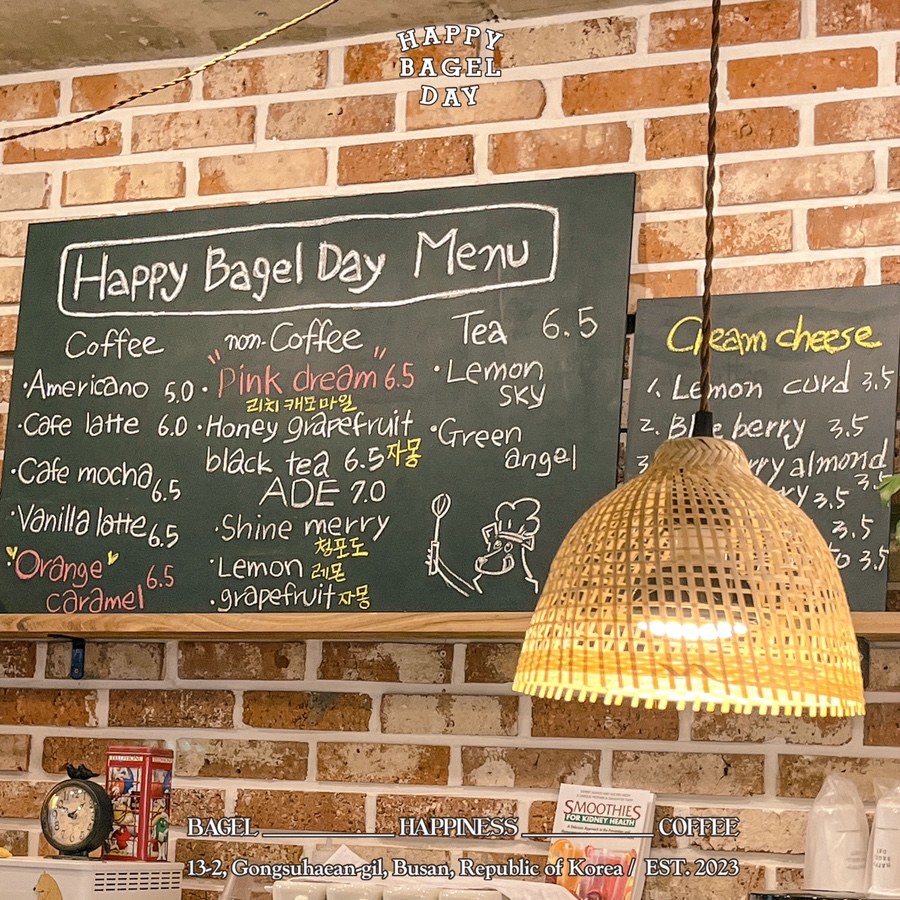 HAPPY
BAGEL
DAY
Happy Bagel Day Menu
Coffee
·Americano 5.0
·Cafe latte 6.0
·Cafe mocha 6.5
·Vanilla latte 6.5
·Orange
caramel 6.5
non-Coffee
·"Pink dream" 6.5
리치 캐모마일
·Honey grapefruit
black tea 6.5 자몽
ADE 7.0
·Shine merry
청포도
·Lemon 레몬
·grapefruit 자몽
Tea 6.5
·Lemon
sky
·Green
angel
Cream cheese
1. Lemon curd 3.5
2. Blueberry 3.5
3. almond
3.5
3.5
3.5
3.5
TELEPHONE
SMOOTHIES
FOR KIDNEY HEALTH
BAGEL HAPPINESS COFFEE
13-2, Gongsuhaean-gil, Busan, Republic of Korea / EST. 2023